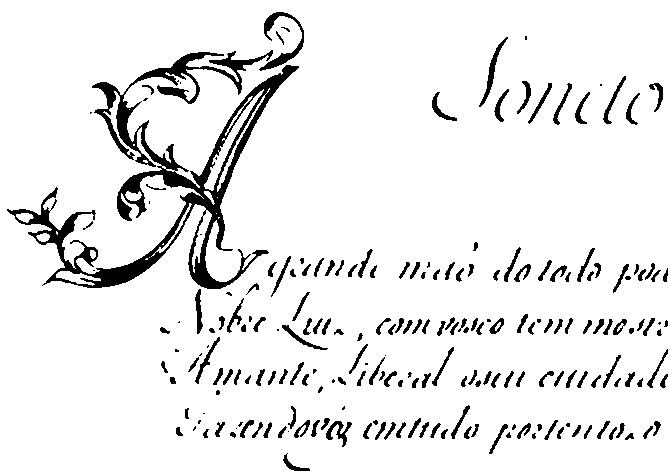 Soneto
A grande maõ do todo pod
Nobre Luiz, comvosco tem mostr
Amante, Liberal oseu cuidado
Fazendovos emtudo portentozo